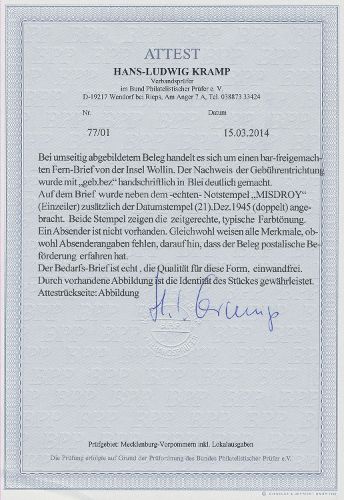 ATTEST
HANS-LUDWIG KRAMP
Verbandsprüfer
im Bund Philatelistischer Prüfer e.V.
D-19217 Wendorf bei Rieps, Am Anger 7 A, Tel. 038873 33424
Nr. Datum
77/01 15.03.2014
Bei umseitig abgebildetem Beleg handelt es sich um einen bar-freigemach-
ten Fern-Brief von der Insel Wollin. Der Nachweis der Gebührentrichtung
wurde mit „geb.bez" handschriftlich in Blei deutlich gemacht.
Auf dem Brief wurde neben dem -echten- Notstempel „MISDROY"
(Einzeiler) zusätzlich der Datumstempel (21).Dez.1945 (doppelt) ange-
bracht. Beide Stempel zeigen die zeitgerechte, typische Farbtönung.
Ein Absender ist nicht vorhanden. Gleichwohl weisen alle Merkmale, ob-
wohl Absenderangaben fehlen, darauf hin, dass der Beleg postalische Be-
förderung erfahren hat.
Der Bedarfs-Brief ist echt , die Qualität für diese Form, einwandfrei.
Durch vorhandene Abbildung ist die Identität des Stückes gewährleistet.
Attestrückseite: Abbildung
H. L. Kramp
Prüfgebiet: Mecklenburg-Vorpommern inkl. Lokalausgaben
Die Prüfung erfolgte auf Grund der Prüfordnung des Bundes Philatelistischer Prüfer e.V.